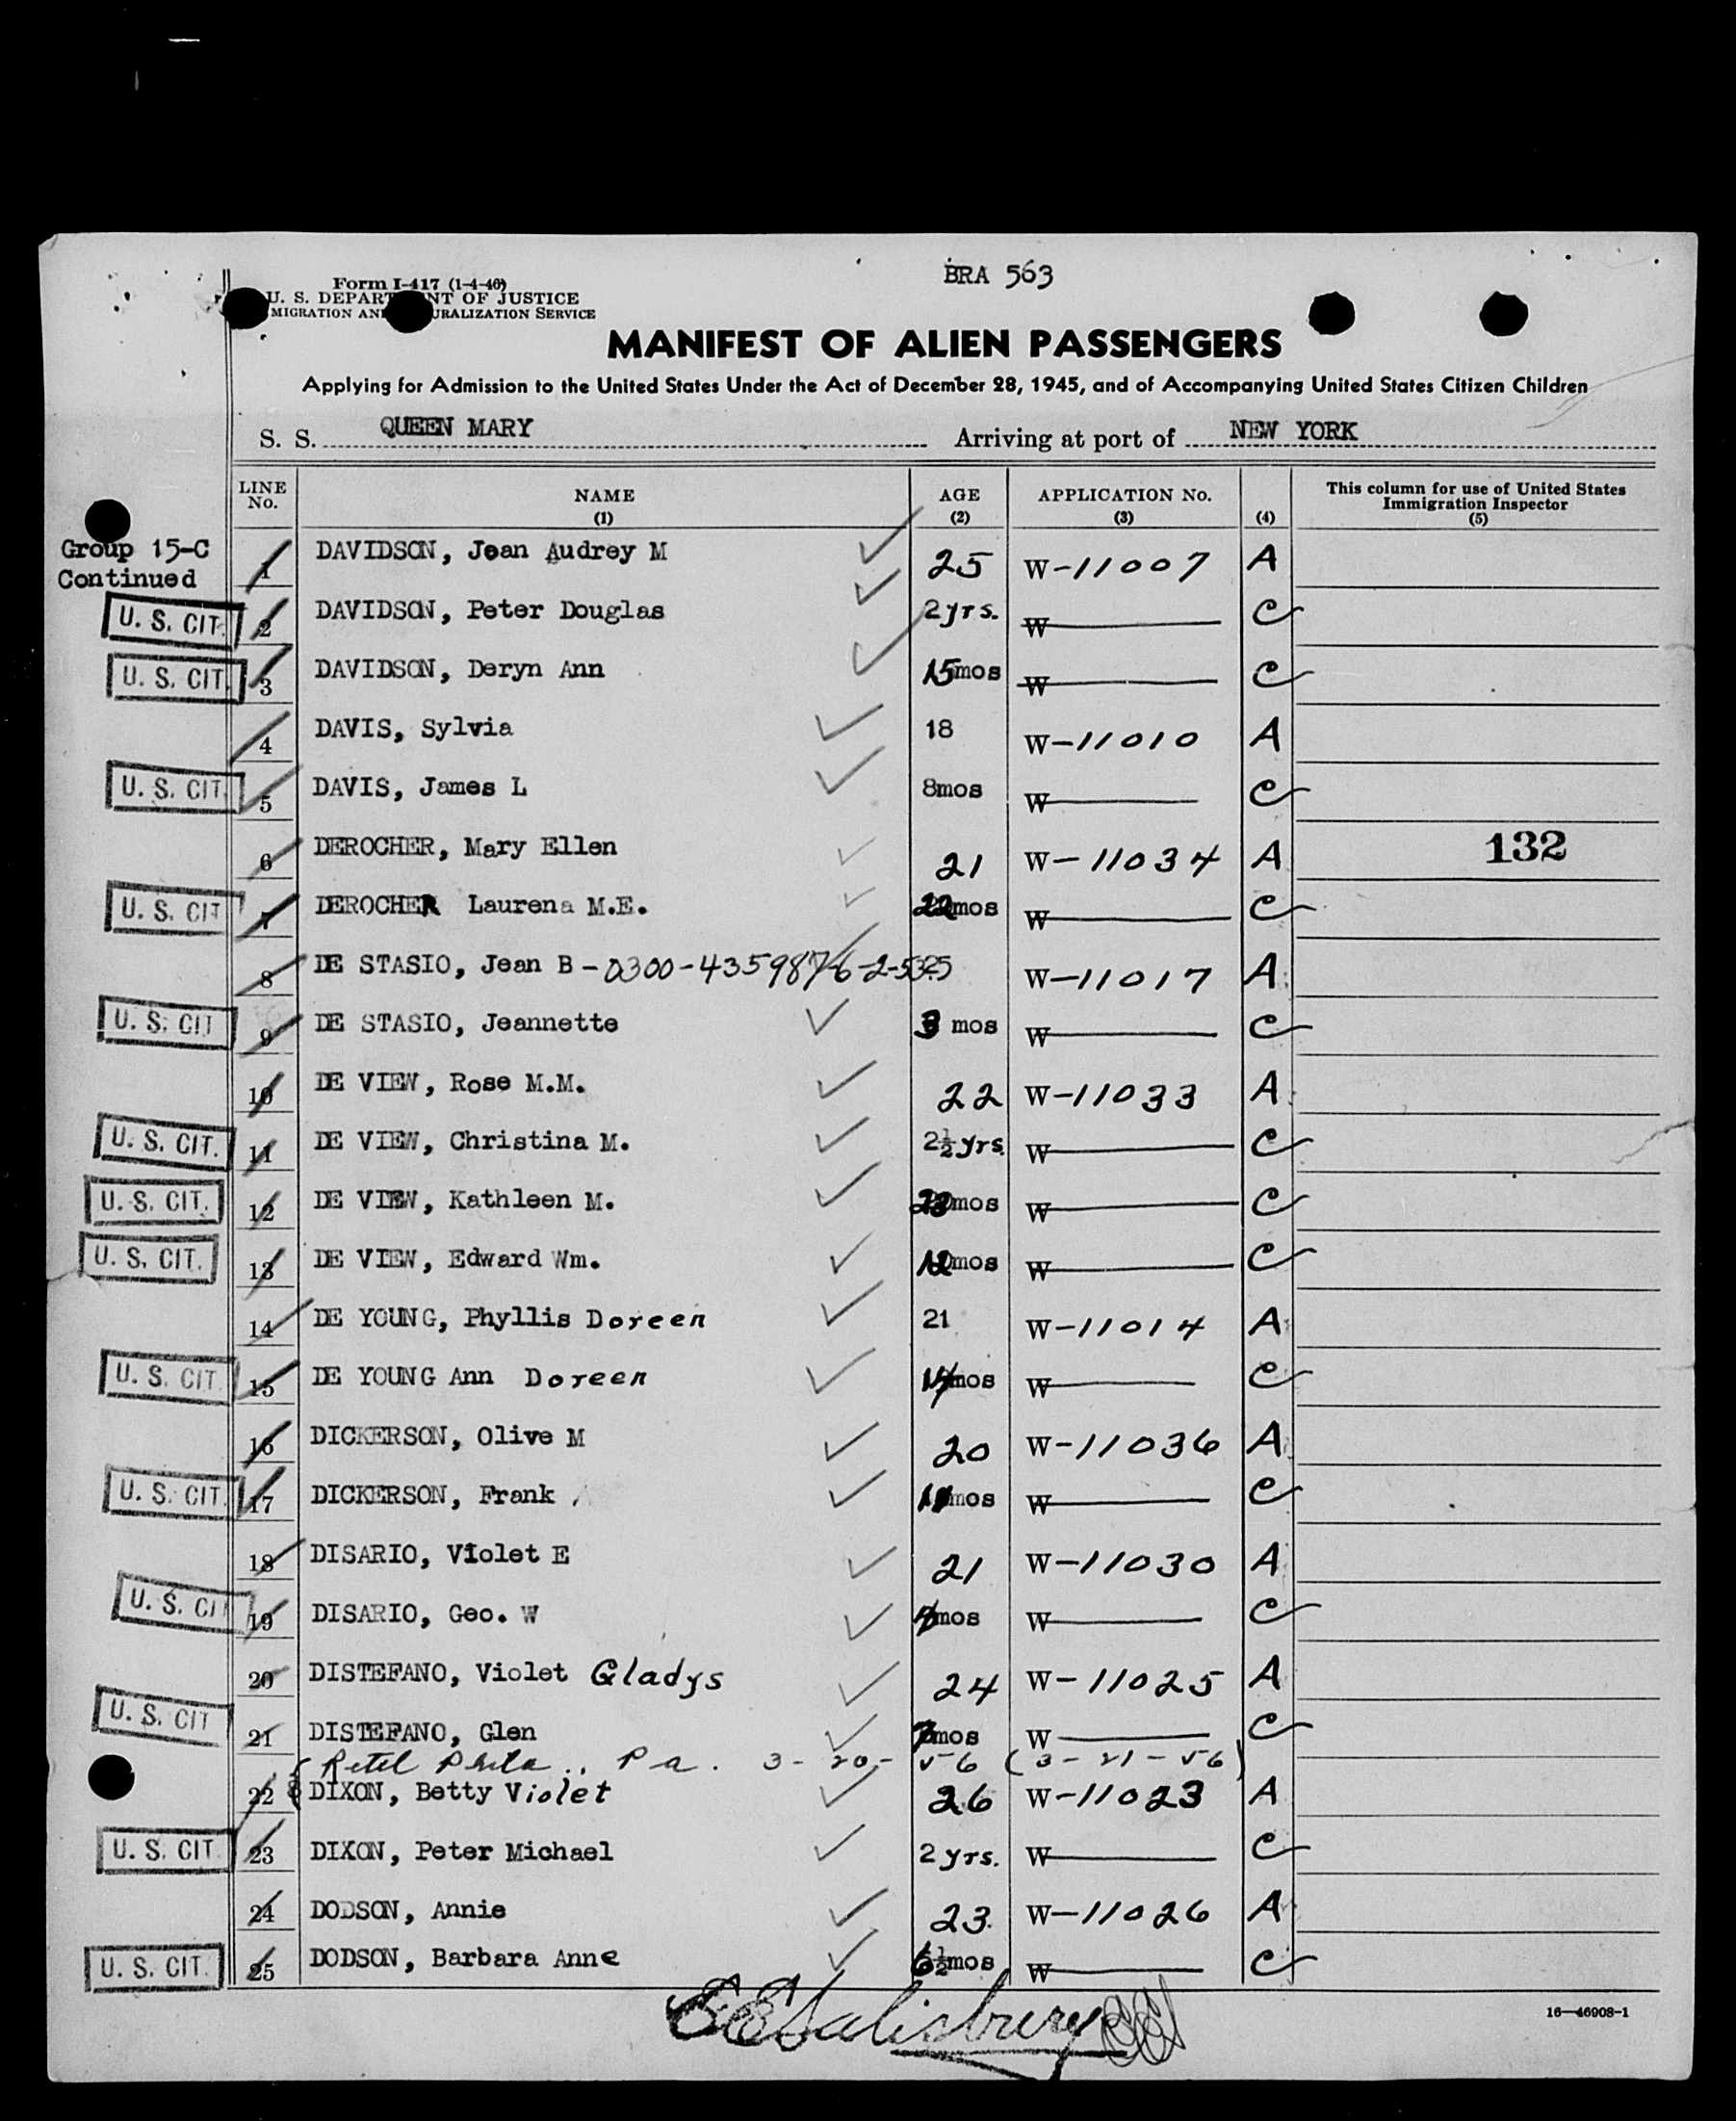 BRA 563
Form I-417 (1-4-46)
U. S. DEPARTMENT OF JUSTICE
IMMIGRATION AND NATURALIZATION SERVICE
MANIFEST OF ALIEN PASSENGERS
Applying for Admission to the United States Under the Act of December 28, 1945, and of Accompanying United States Citizen Children
S. S. QUEEN MARY Arriving at port of NEW YORK
LINE No. NAME (1) AGE (2) APPLICATION No. (3) (4) This column for use of United States Immigration Inspector (5)
Group 15-C
Continued
1 DAVIDSON, Jean Audrey M 25 W-11007 A
U. S. CIT. 2 DAVIDSON, Peter Douglas 2yrs. W C
U. S. CIT. 3 DAVIDSON, Deryn Ann 15mos W C
4 DAVIS, Sylvia 18 W-11010 A
U. S. CIT. 5 DAVIS, James L 8mos W C
6 DEROCHER, Mary Ellen 21 W-11034 A 132
U. S. CIT 7 DEROCHER Laurena M.E. 22mos W C
8 DE STASIO, Jean B -0300-435987-6-2-53 25 W-11017 A
U. S. CIT 9 DE STASIO, Jeannette 3 mos W C
10 DE VIEW, Rose M.M. 22 W-11033 A
U. S. CIT. 11 DE VIEW, Christina M. 2½yrs. W C
U. S. CIT. 12 DE VIEW, Kathleen M. mos W C
U. S. CIT. 13 DE VIEW, Edward Wm. 12mos W C
14 DE YOUNG, Phyllis Doreen 21 W-11014 A
U. S. CIT 15 DE YOUNG Ann Doreen mos W C
16 DICKERSON, Olive M 20 W-11036 A
U. S. CIT. 17 DICKERSON, Frank 11mos W C
18 DISARIO, Violet E 21 W-11030 A
U. S. CIT 19 DISARIO, Geo. W mos W C
20 DISTEFANO, Violet Gladys 24 W-11025 A
U. S. CIT 21 DISTEFANO, Glen 7mos W C
Phila., Pa. 3-20-56 (3-21-56)
22 DIXON, Betty Violet 26 W-11023 A
U. S. CIT. 23 DIXON, Peter Michael 2yrs. W C
24 DODSON, Annie 23 W-11026 A
U. S. CIT. 25 DODSON, Barbara Anne 6½mos W C
EE Salisbury
16—46908-1